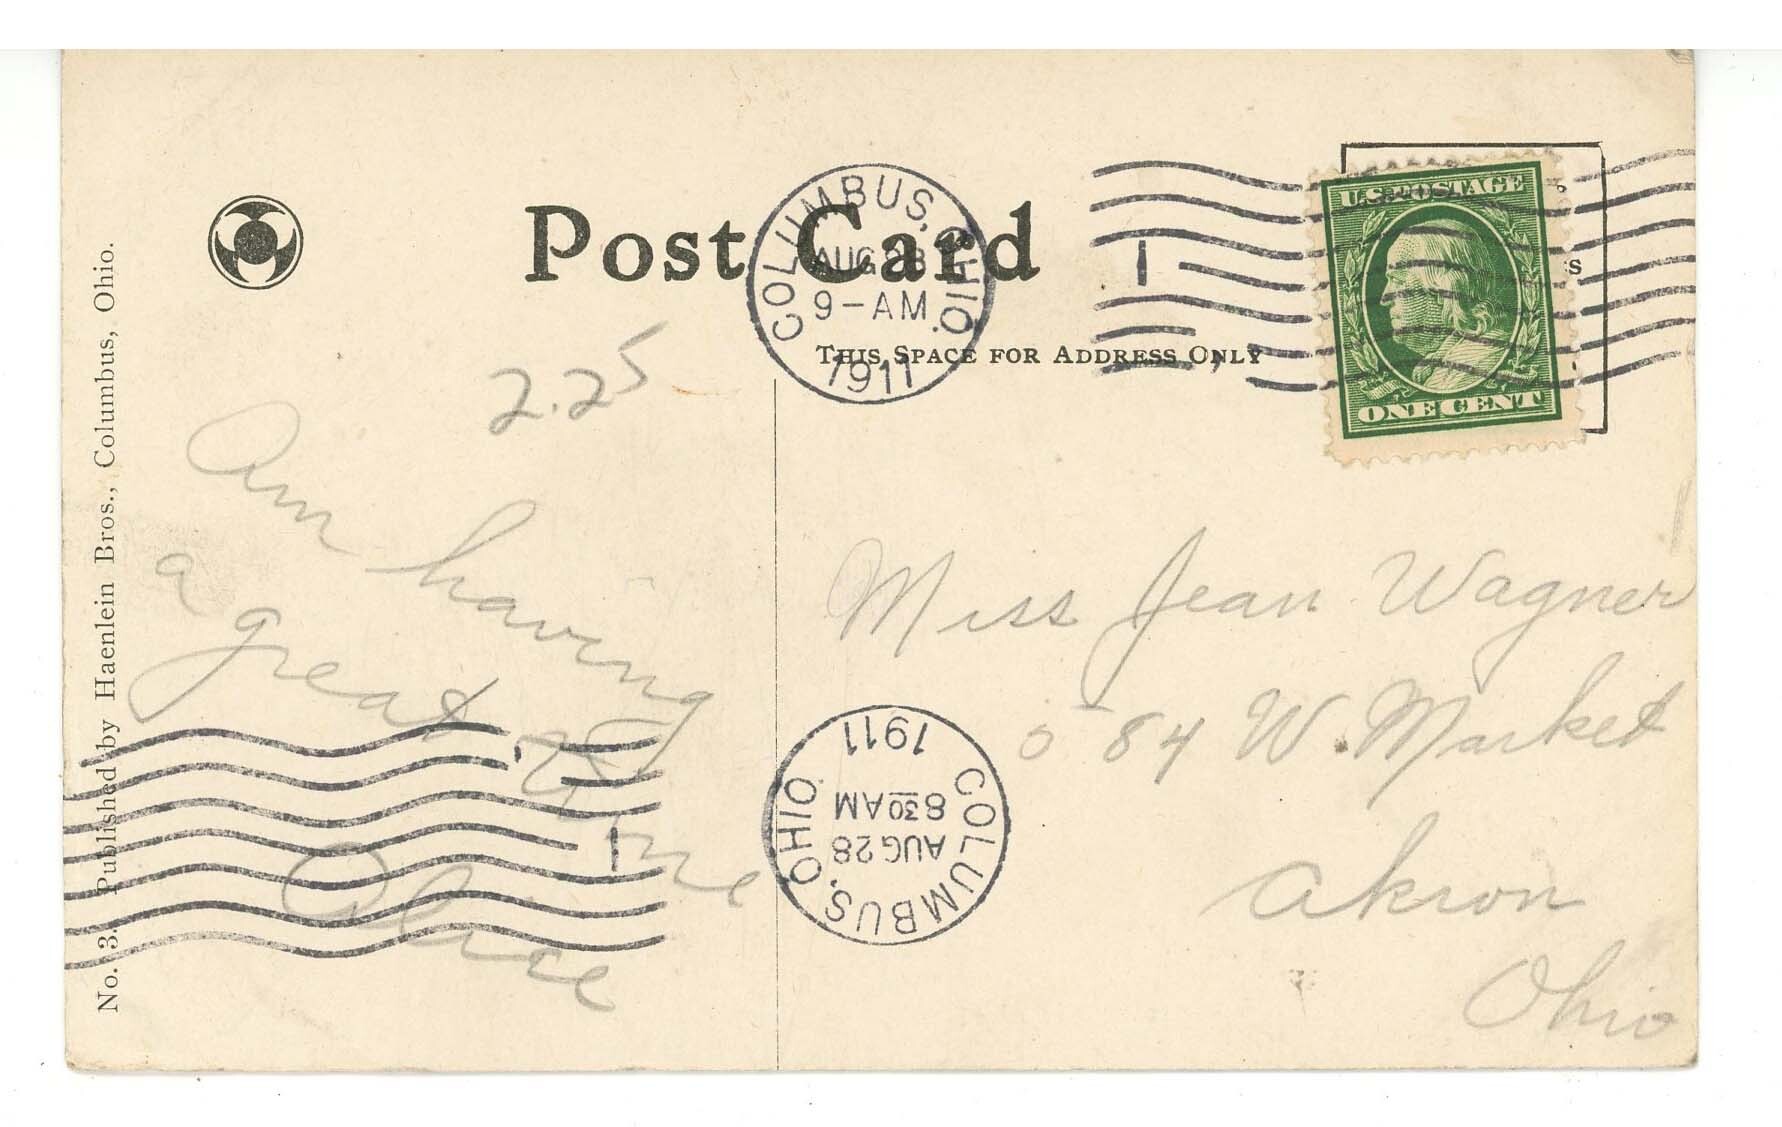 Post Card
COLUMBUS, OHIO.
AUG 28
9-AM
1911
U.S. POSTAGE
ONE CENT
THIS SPACE FOR ADDRESS ONLY
2.25
Am having
a great
time
Alice
Miss Jean Wagner
584 W. Market
Akron
Ohio
COLUMBUS, OHIO.
AUG 28
830 AM
1911
No. 3. Published by Haenlein Bros., Columbus, Ohio.